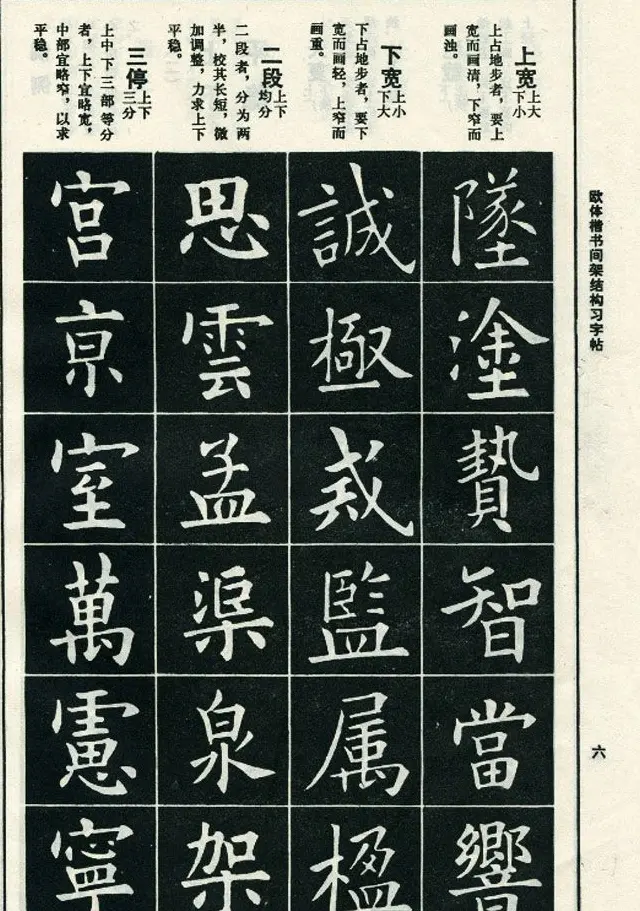 欧体楷书间架结构习字帖
六
上宽
上大
下小
上占地步者，要上
宽而画清，下窄而
画浊。
墜
塗
贄
智
當
響
下宽
上小
下大
下占地步者，要下
宽而画轻，上窄而
画重。
誠
極
戒
監
属
楹
二段
上下
均分
二段者，分为两
半，校其长短，微
加调整，力求上下
平稳。
思
雲
孟
渠
泉
架
三停
上下
三分
上中下三部等分
者，上下宜略宽，
中部宜略窄，以求
平稳。
宫
亰
室
萬
憲
寧